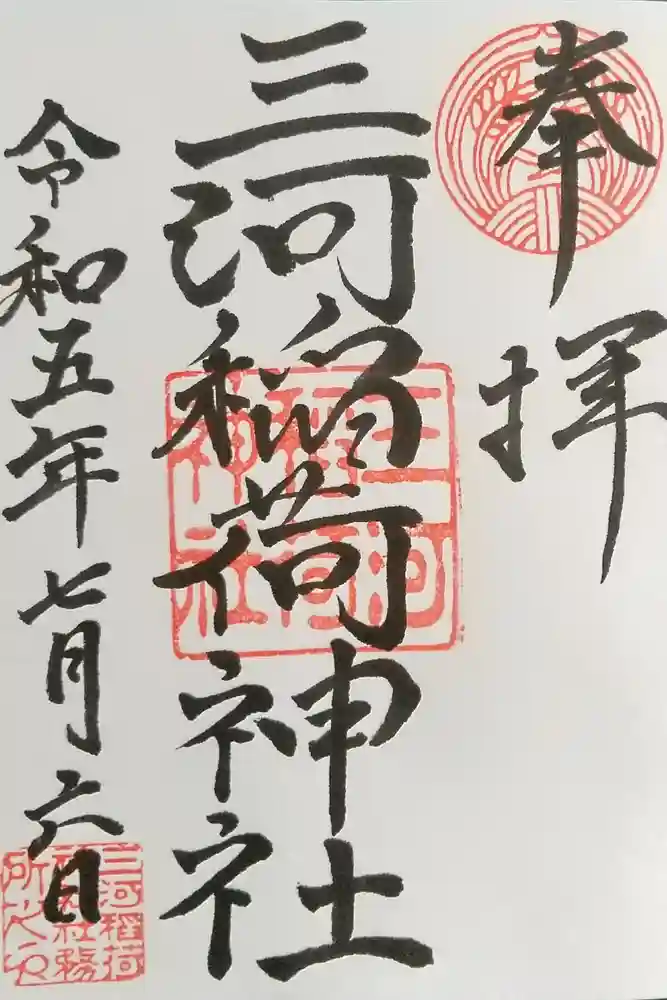 奉拝
三河稲荷神社
三河稲荷神社
令和五年七月六日
三河稲荷神社社務所之印